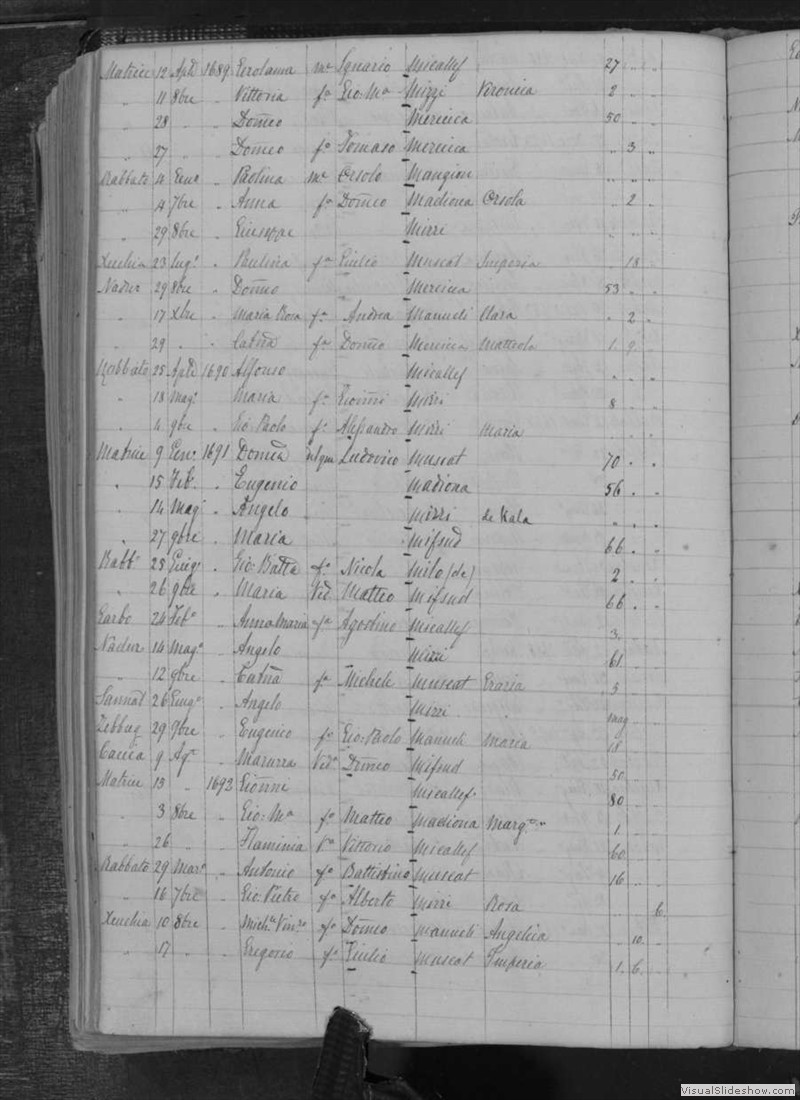 Matrice 12 Aple 1689 Gerolama ma Ignazio Micallef 27 " "
" 11 8bre " Vittoria fa Gio: Ma Mizzi Veronica 2 " "
" 28 " " Domeo Mercieca 50 " "
" 27 " " Domeo fo Tomaso Mercieca " 3 "
Rabbato 4 " Paolina me Orsolo Mangion " " "
" 4 7bre " Anna fa Domeo Madiona Orsola " 2 "
" 29 8bre " Giuseppe Mizzi " " "
Xeuchia 23 Lugo " Paulina fa Giulio Muscat Imperia " 18 "
Nadur 29 8bre " Domeo Mercieca 53 " "
" 17 Xbre " Maria Rosa fa Andrea Manueli Clara " 2 "
" 29 " " Catna fa Domeo Mercieca Matteola 1 9 "
Rabbato 25 Aple 1690 Alfonso Micallef " " "
" 18 Mago Maria fa Gionni Mizzi 8 " "
" 4 9bre " Gio Paolo fo Alessandro Mizzi Maria " " "
Matrice 9 Gen: 1691 Domca Ludovico Muscat 70 " "
" 15 Feb. " Eugenio Madiona 56 " "
" 14 Mago " Angelo Mizzi de Nala " " "
" 27 9bre " Maria Mifsud 66 " "
Rabbo 28 Giugo " Gio: Batta fo Nicola Milo (de) 2 " "
" 26 9bre " Maria Vid Matteo Mifsud 66 " "
Garbo 24 Febo " Anna Maria fa Agostino Micallef 3 " "
Nadur 14 Mago " Angelo Mizzi 61 " "
" 12 9bre " Catna fa Michele Muscat Grazia 3 " "
Sannat 26 Giugo " Angelo Mizzi mag " "
Zebbug 29 9bre " Eugenio fo Gio: Paolo Manueli Maria 18 " "
Caccia 9 Ago " Maruzza Vida Domeo Mifsud 50 " "
Matrice 13 " 1692 Gionni Micallef 80 " "
" 3 8bre " Gio: Ma fo Matteo Madiona Marg.ta 1 " "
" 26 " " Flaminia Va Vittorio Micallef 60 " "
Rabbato 29 Maro " Antonio fo Battistino Muscat 16 " "
" 16 7bre " Gio: Pietro fo Alberto Mizzi Rosa " " 6
Xeuchia 10 8bre " Mich: Vinzo fo Domeo Manueli Angelica " 10 "
" 17 " " Gregorio fo Giulio Muscat Imperia 1 6 "
VisualSlideshow.com